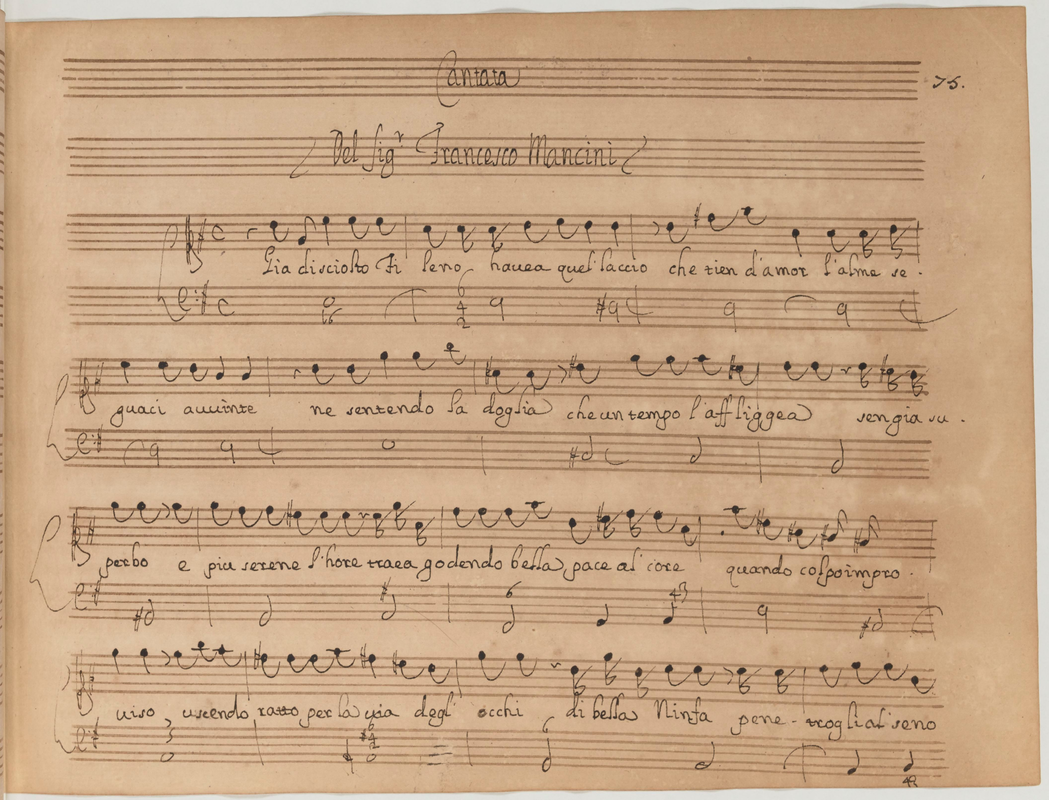 Cantata
75.
Del Sigr Francesco Mancini
Gia disciolto Fileno havea quel' laccio che tien d'amor l'alme se-
guaci auuinte ne sentendo la doglia che un tempo l'affliggea sengia su-
perbo e piu serene l'hore traea godendo bella pace al core quando colpo impro-
uiso uscendo ratto per la uia degl' occhi di bella Ninfa pene-trogli al' seno